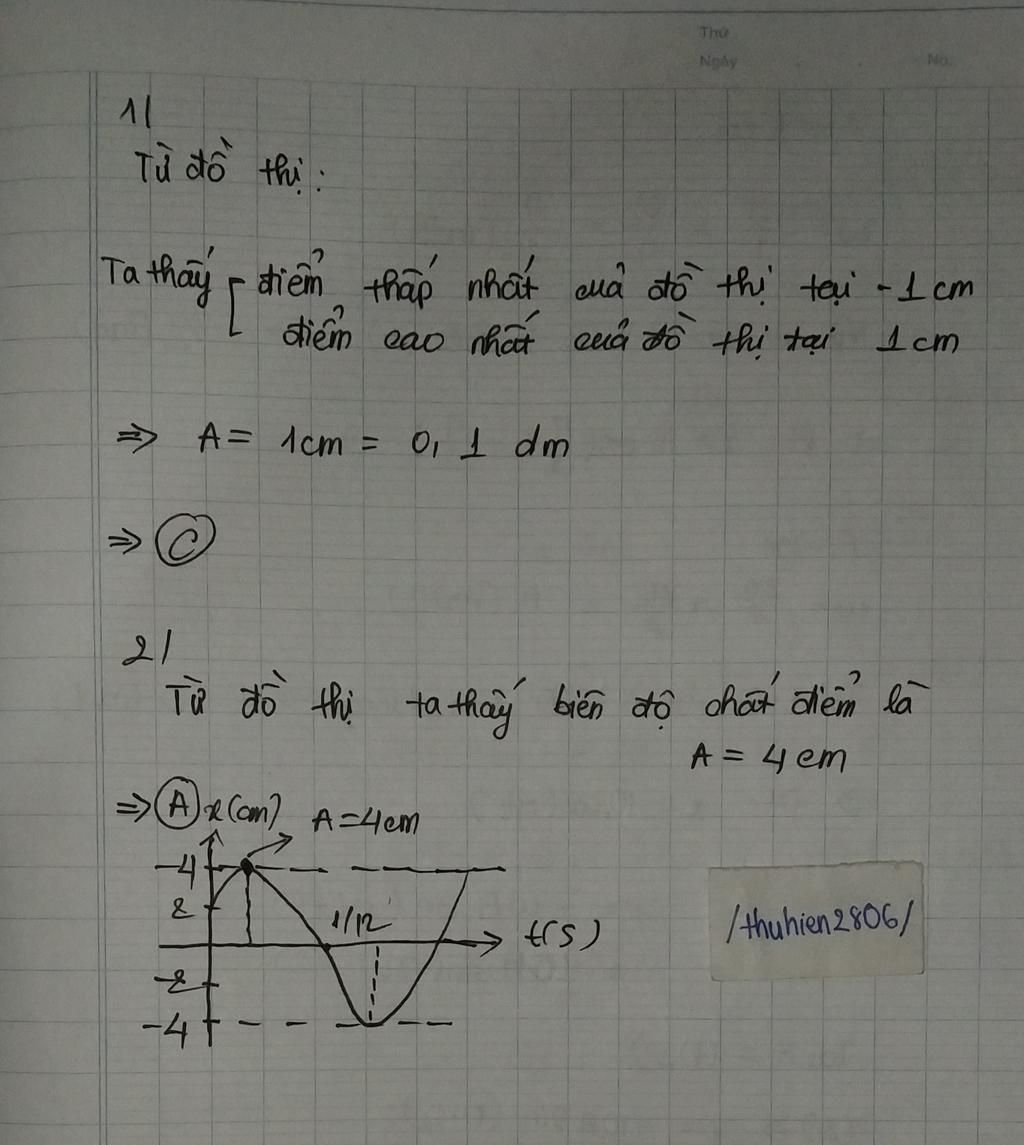 Thứ
Ngày
No.
1/
Từ đồ thị:
Ta thấy điểm thấp nhất của đồ thị tại -1cm
điểm cao nhất của đồ thị tại 1cm
=> A = 1cm = 0,1 dm
=> C
2/
Từ đồ thị ta thấy biên độ chất điểm là
A = 4cm
=> A x(cm) A=4cm
-4
2
1/12
t(s)
-2
-4
/thuhien2806/